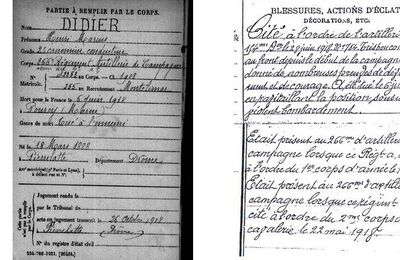 PARTIE À REMPLIR PAR LE CORPS.
DIDIER
Prénoms Henri Marius
Grade 2e canonnier conducteur
Corps 266e Régiment d'Artillerie de Campagne
N° au Corps. — Cl. 1908
Matricule. 253 au Recrutement Montélimar
Mort pour la France le 6 juin 1918
à
Genre de mort Tué à l'ennemi
Né le 18 Mars 1888
à Pierrelatte Département Drôme
Arrt municipal (pr Paris et Lyon),
à défaut rue et N°.
Jugement rendu le
par le Tribunal de
acte ou jugement transcrit le 26 Octobre 1918
à Pierrelatte Drôme
N° du registre d'état civil
534-708-1921. [26434.]
BLESSURES, ACTIONS D'ÉCLAT
DÉCORATIONS, ETC.
Cité à l'ordre de l'artillerie
au front depuis le début de la campagne
donné de nombreuses preuves de
et de courage. A été tué
la position, sous
violent bombardement.
Etait présent au 266me d'artillerie
campagne lorsque ce Régt a
à l'ordre du 1er corps d'armée
Etait présent au 266me d'artil
campagne lorsque ce régiment
cité à l'ordre du 2me corps
cavalerie le 22 mai 1918